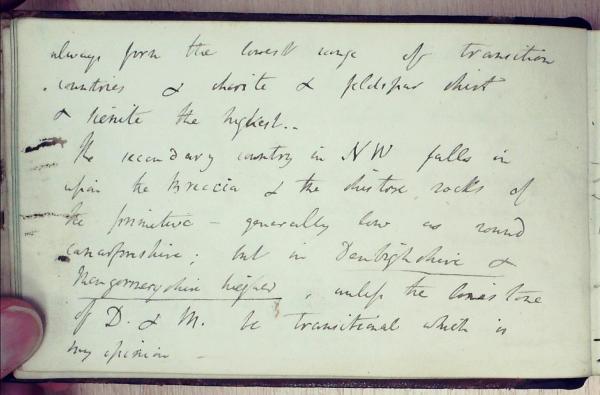 always form the lowest range of transition
countries & chlorite & feldspar shist
& sienite the highest..
The secondary country in NW falls in
upon the Breccia & the shistose rocks of
the primitive – generally low as round
carnarfonshire; but in Denbighshire &
Montgomeryshire higher, unless the limestone
of D. & M. be transitional which is
my opinion –